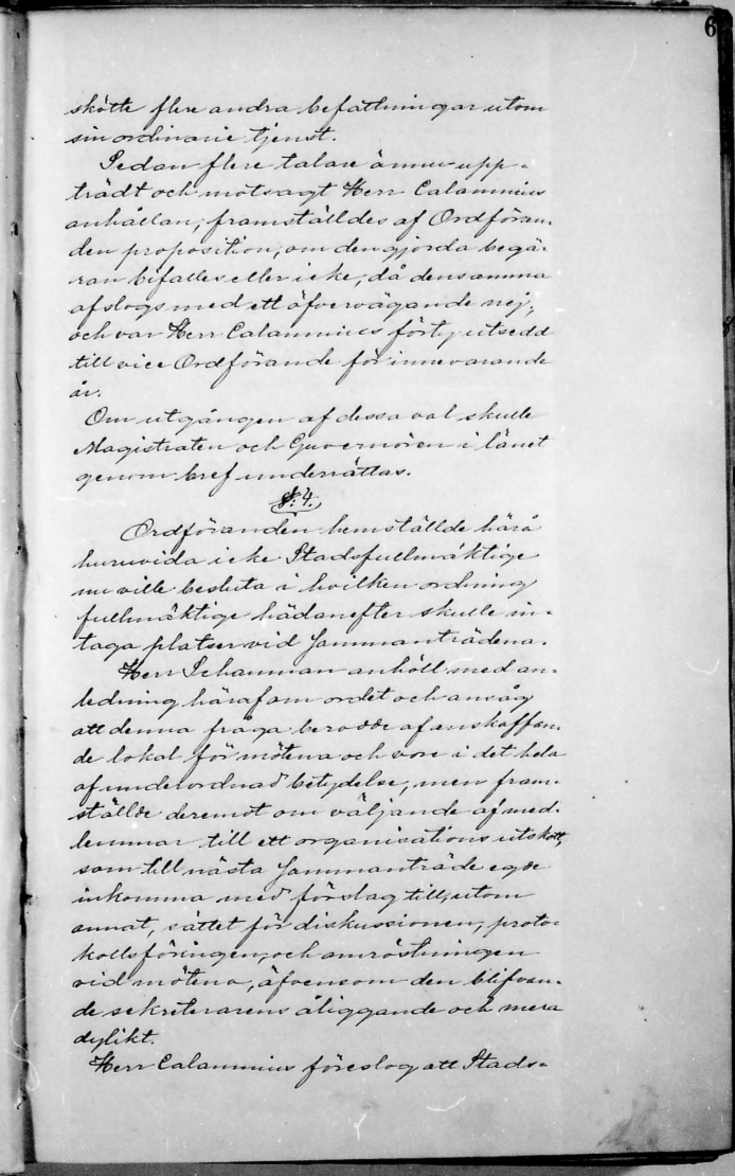 6
skötte flere andra befattningar utom
sin ordinarie tjenst.
Sedan flere talare ännu upp-
trädt och motsagt Herr Calamnius
anhållan, framställdes af Ordföran-
den proposition, om den gjorda begä-
ran bifalles eller icke, då densamma
afslogs med ett öfvervägande nej,
och var Herr Calamnius förty utsedd
till vice Ordförande för innevarande
år.
Om utgången af dessa val skulle
Magistraten och Guvernören i länet
genom bref underrättas.
§. 4.
Ordföranden hemställde härå
huruvida icke Stadsfullmäktige
nu ville besluta i hvilken ordning
fullmäktige hädanefter skulle in-
taga platser vid sammanträdena.
Herr Schauman anhöll med an-
ledning häraf om ordet och ansåg
att denna fråga berodde af anskaffan-
de lokal för mötena och vore i det hela
af underordnad betydelse, men fram-
ställde deremot om väljande af med-
lemmar till ett organisations utskott,
som till nästa sammanträde egde
inkomma med förslag till, utom
annat, sättet för diskussionen, proto-
kollsföringen, och omröstningen
vid mötena, äfvensom den blifvan-
de sekreterarens åliggande och mera
dylikt.
Herr Calamnius föreslog att Stads-